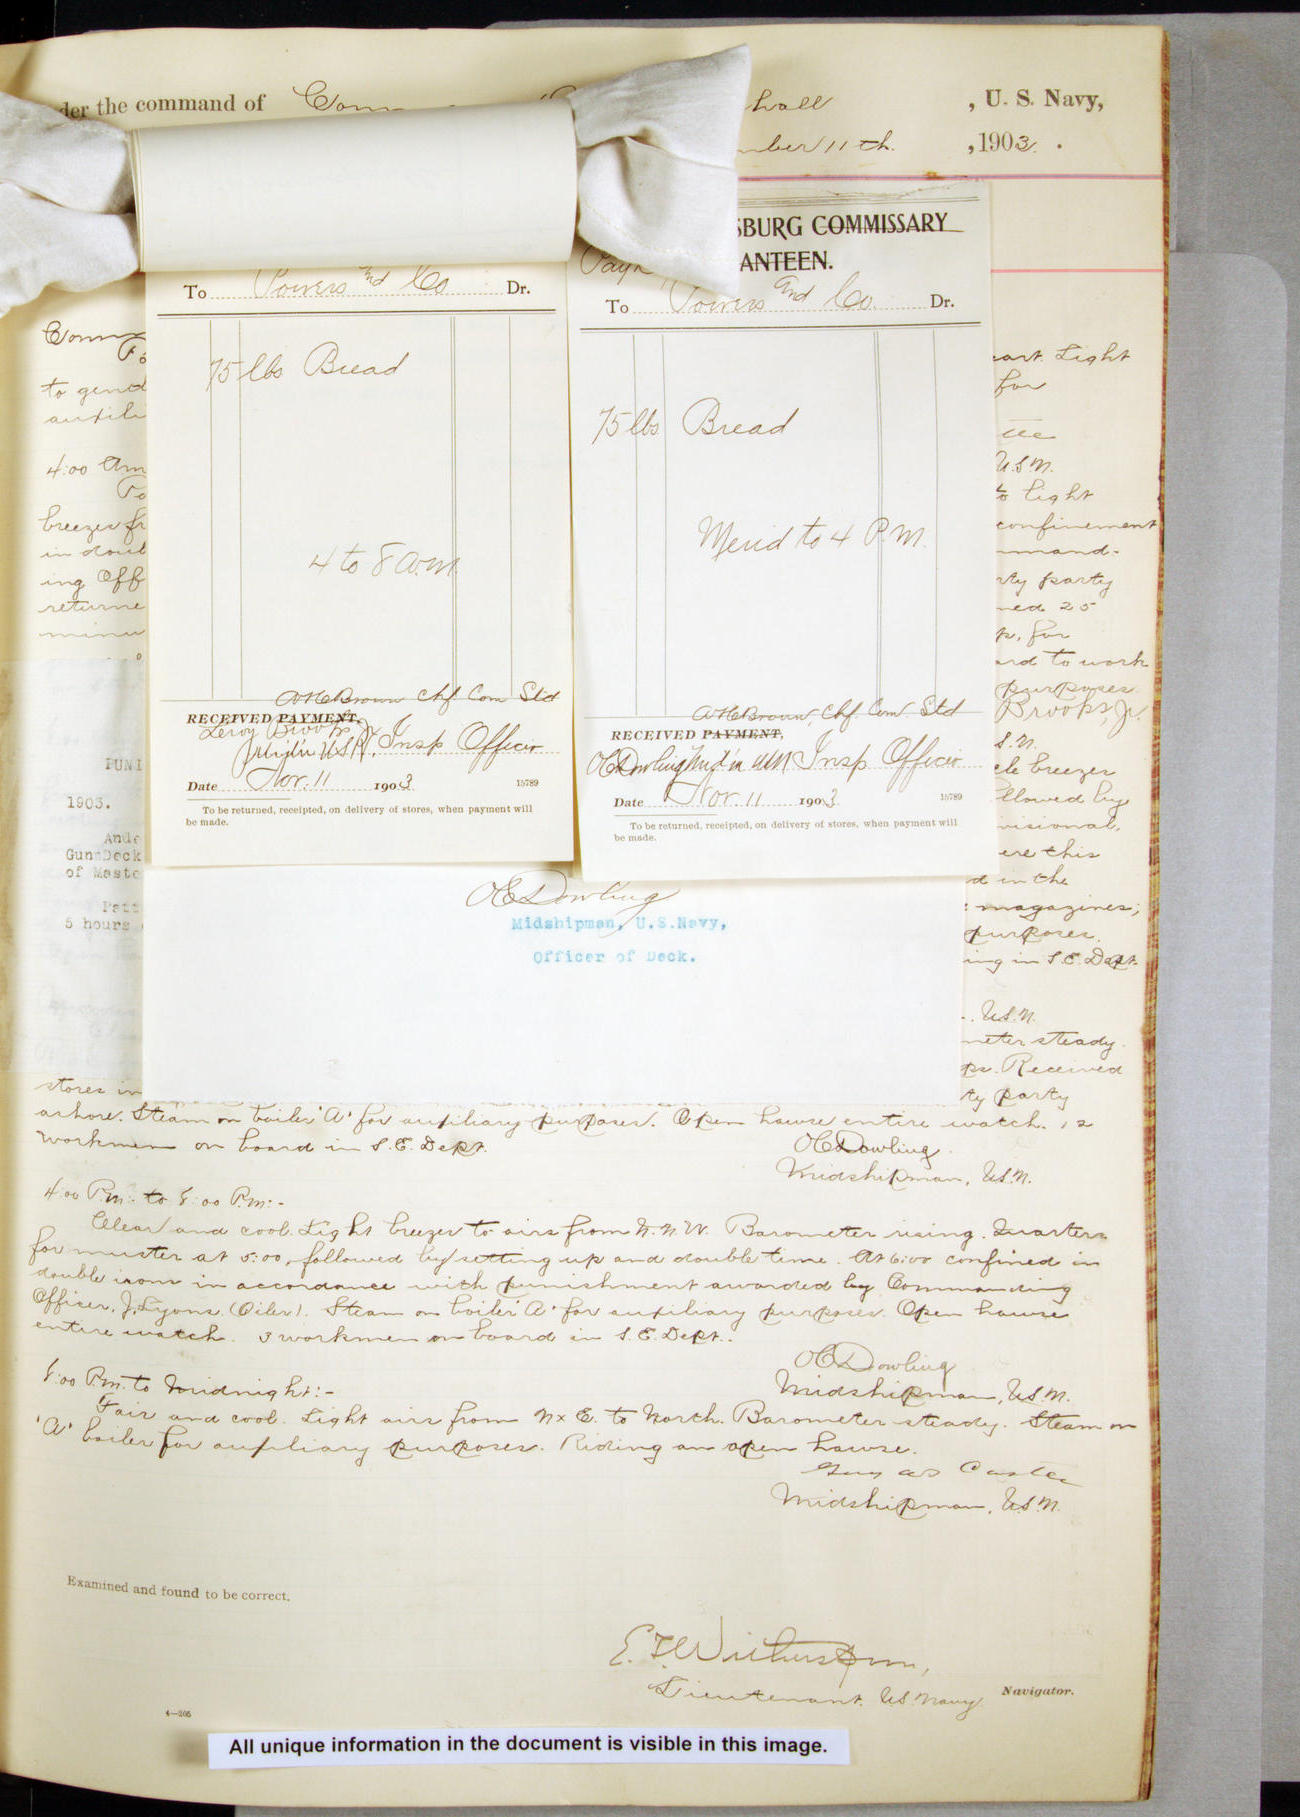 der the command of
hall , U. S. Navy,
mber 11th. , 1903.
SBURG COMMISSARY
ANTEEN.
To Powers and Co Dr.
75 lbs Bread
4 to 8 a.m.
A H Brown Chf Com Std
RECEIVED PAYMENT,
Leroy Brooks Jr
Midn U.S.N., Insp Officer
Date Nov. 11 1903 15789
To be returned, receipted, on delivery of stores, when payment will
be made.
To Powers and Co. Dr.
75 lbs Bread
Merid to 4 P.M.
A H Brown, Chf. Com. Std
RECEIVED PAYMENT,
Insp Officer
Date Nov. 11 1903 15789
To be returned, receipted, on delivery of stores, when payment will
be made.
to gent
auxili
4:00 Am
breezes fr
in doub
ing Off
returne
minu
PUNI
1903.
Ande
GunnDeck
of Maste
Patt
5 hours
Light
for
U.S.N.
to light
confinement
mmand-
rty party
ned 25
p. for
ard to work
purposes.
Brooks, Jr.
S.N.
le breezes
ollowed by
visional.
ere this
d in the
magazines;
purposes.
ing in S.E. Dept.
U.S.N.
meter steady.
ps. Received
ty party
OC Dowling
Midshipman, U.S.Navy,
Officer of Deck.
stores in
ashore. Steam on boiler "A" for auxiliary purposes. Open hawse entire watch. 12
workmen on board in S.E. Dept.
OC Dowling
Midshipman, U.S.N.
4:00 P.m. to 8:00 P.m:-
Clear and cool. Light breezes to airs from N.N.W. Barometer rising. Quarters
for muster at 5:00, followed by setting up and double time. At 6:00 confined in
double irons in accordance with punishment awarded by Commanding
Officer, J. Lyons (Oiler). Steam on boiler "A" for auxiliary purposes. Open hawse
entire watch. 3 workmen on board in S.E. Dept.
OC Dowling
Midshipman, U.S.N.
8:00 P.m. to Midnight:-
Fair and cool. Light airs from N x E. to North. Barometer steady. Steam on
"A" boiler for auxiliary purposes. Riding an open hawse.
Guy W S Castle
Midshipman, U.S.N.
Examined and found to be correct.
E. T. Witherspoon,
Lieutenant. U.S. Navy Navigator.
4—205
All unique information in the document is visible in this image.